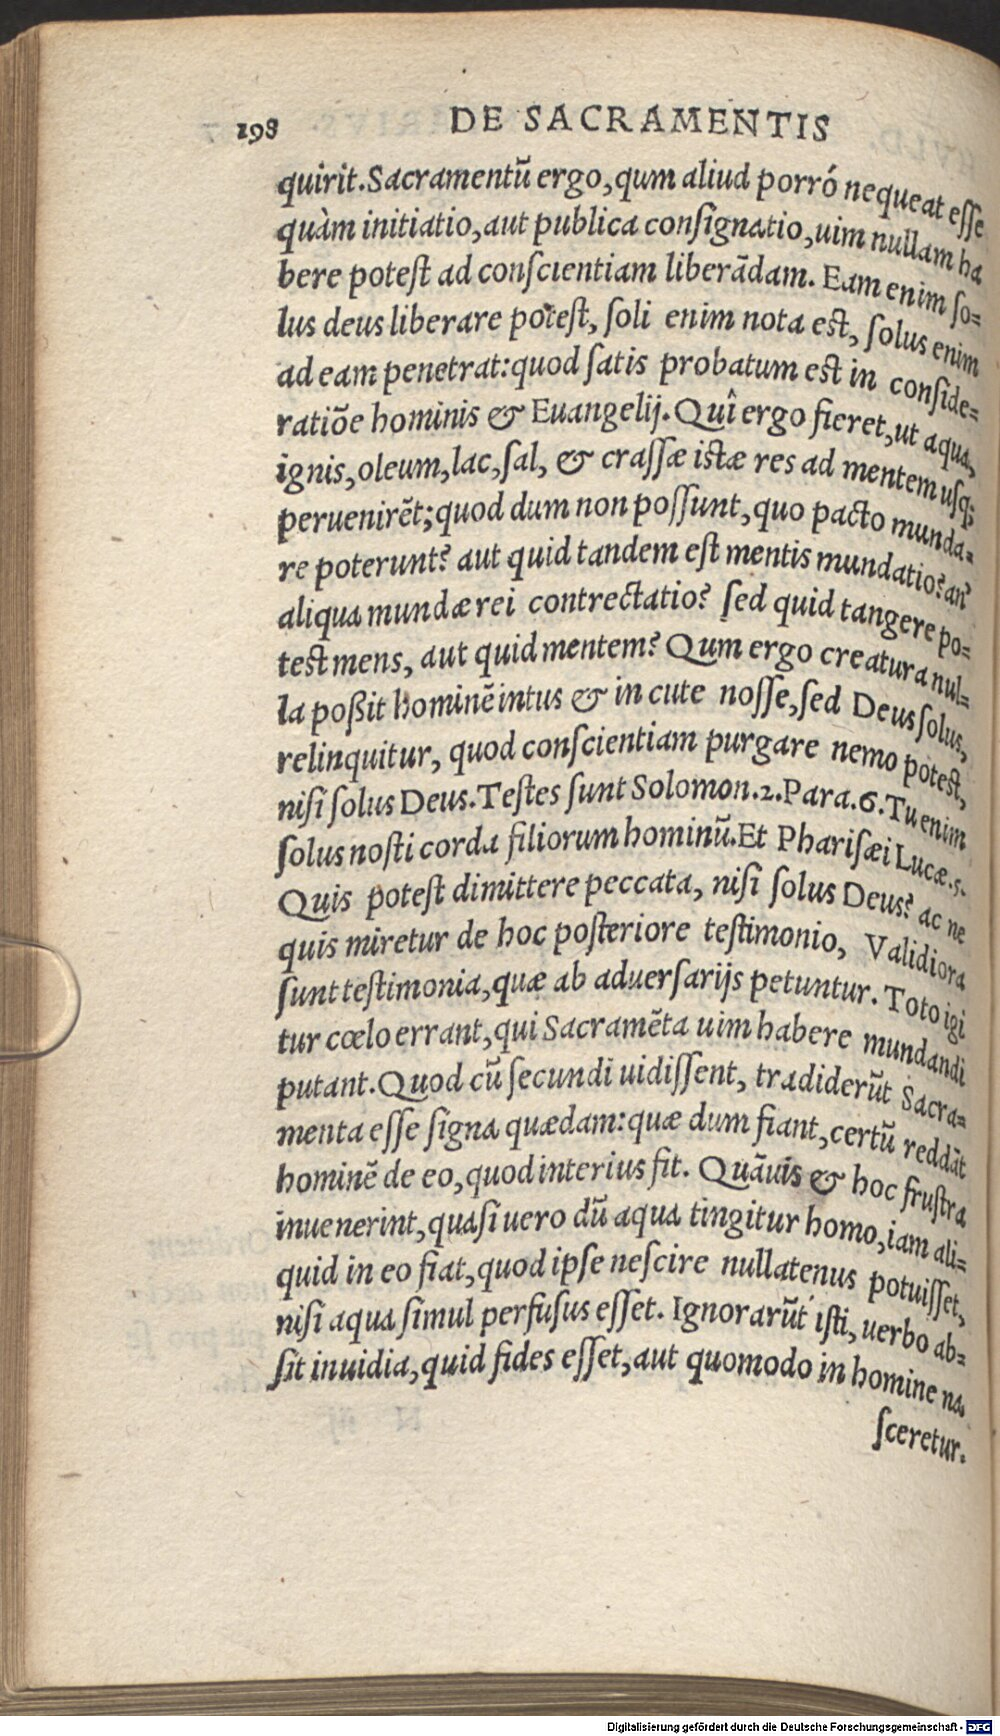 198 DE SACRAMENTIS
quirit. Sacramentũ ergo, qum aliud porró nequeat eſſe
quàm initiatio, aut publica conſignatio, uim nullam ha
bere poteſt ad conſcientiam liberãdam. Eam enim ſo=
lus deus liberare poteſt, ſoli enim nota eſt, ſolus enim
ad eam penetrat: quod ſatis probatum eſt in conſide=
ratiõe hominis & Euangelij. Quî ergo fieret, ut aqua,
ignis, oleum, lac, ſal, & craſſæ iſtæ res ad mentem uſq;
peruenirẽt; quod dum non poſſunt, quo pacto munda=
re poterunt? aut quid tandem eſt mentis mundatio? an?
aliqua mundæ rei contrectatio? ſed quid tangere po=
teſt mens, aut quid mentem? Qum ergo creatura nul=
la poßit hominẽ intus & in cute noſſe, ſed Deus ſolus,
relinquitur, quod conſcientiam purgare nemo poteſt,
niſi ſolus Deus. Teſtes ſunt Solomon. 2. Para. 6. Tu enim
ſolus noſti corda filiorum hominũ. Et Phariſæi Lucæ. 5.
Quis poteſt dimittere peccata, niſi ſolus Deus? ac ne
quis miretur de hoc poſteriore teſtimonio, Validiora
ſunt teſtimonia, quæ ab aduerſarijs petuntur. Toto igi
tur cœlo errant, qui Sacramẽta uim habere mundandi
putant. Quod cũ ſecundi uidiſſent, tradiderũt Sacra=
menta eſſe ſigna quædam: quæ dum fiant, certũ reddãt
hominẽ de eo, quod interius fit. Quãuis & hoc fruſtra
inuenerint, quaſi uero dũ aqua tingitur homo, iam ali=
quid in eo fiat, quod ipſe neſcire nullatenus potuiſſet,
niſi aqua ſimul perfuſus eſſet. Ignorarũt iſti, uerbo ab=
ſit inuidia, quid fides eſſet, aut quomodo in homine na
ſceretur.
Digitalisierung gefördert durch die Deutsche Forschungsgemeinschaft - DFG